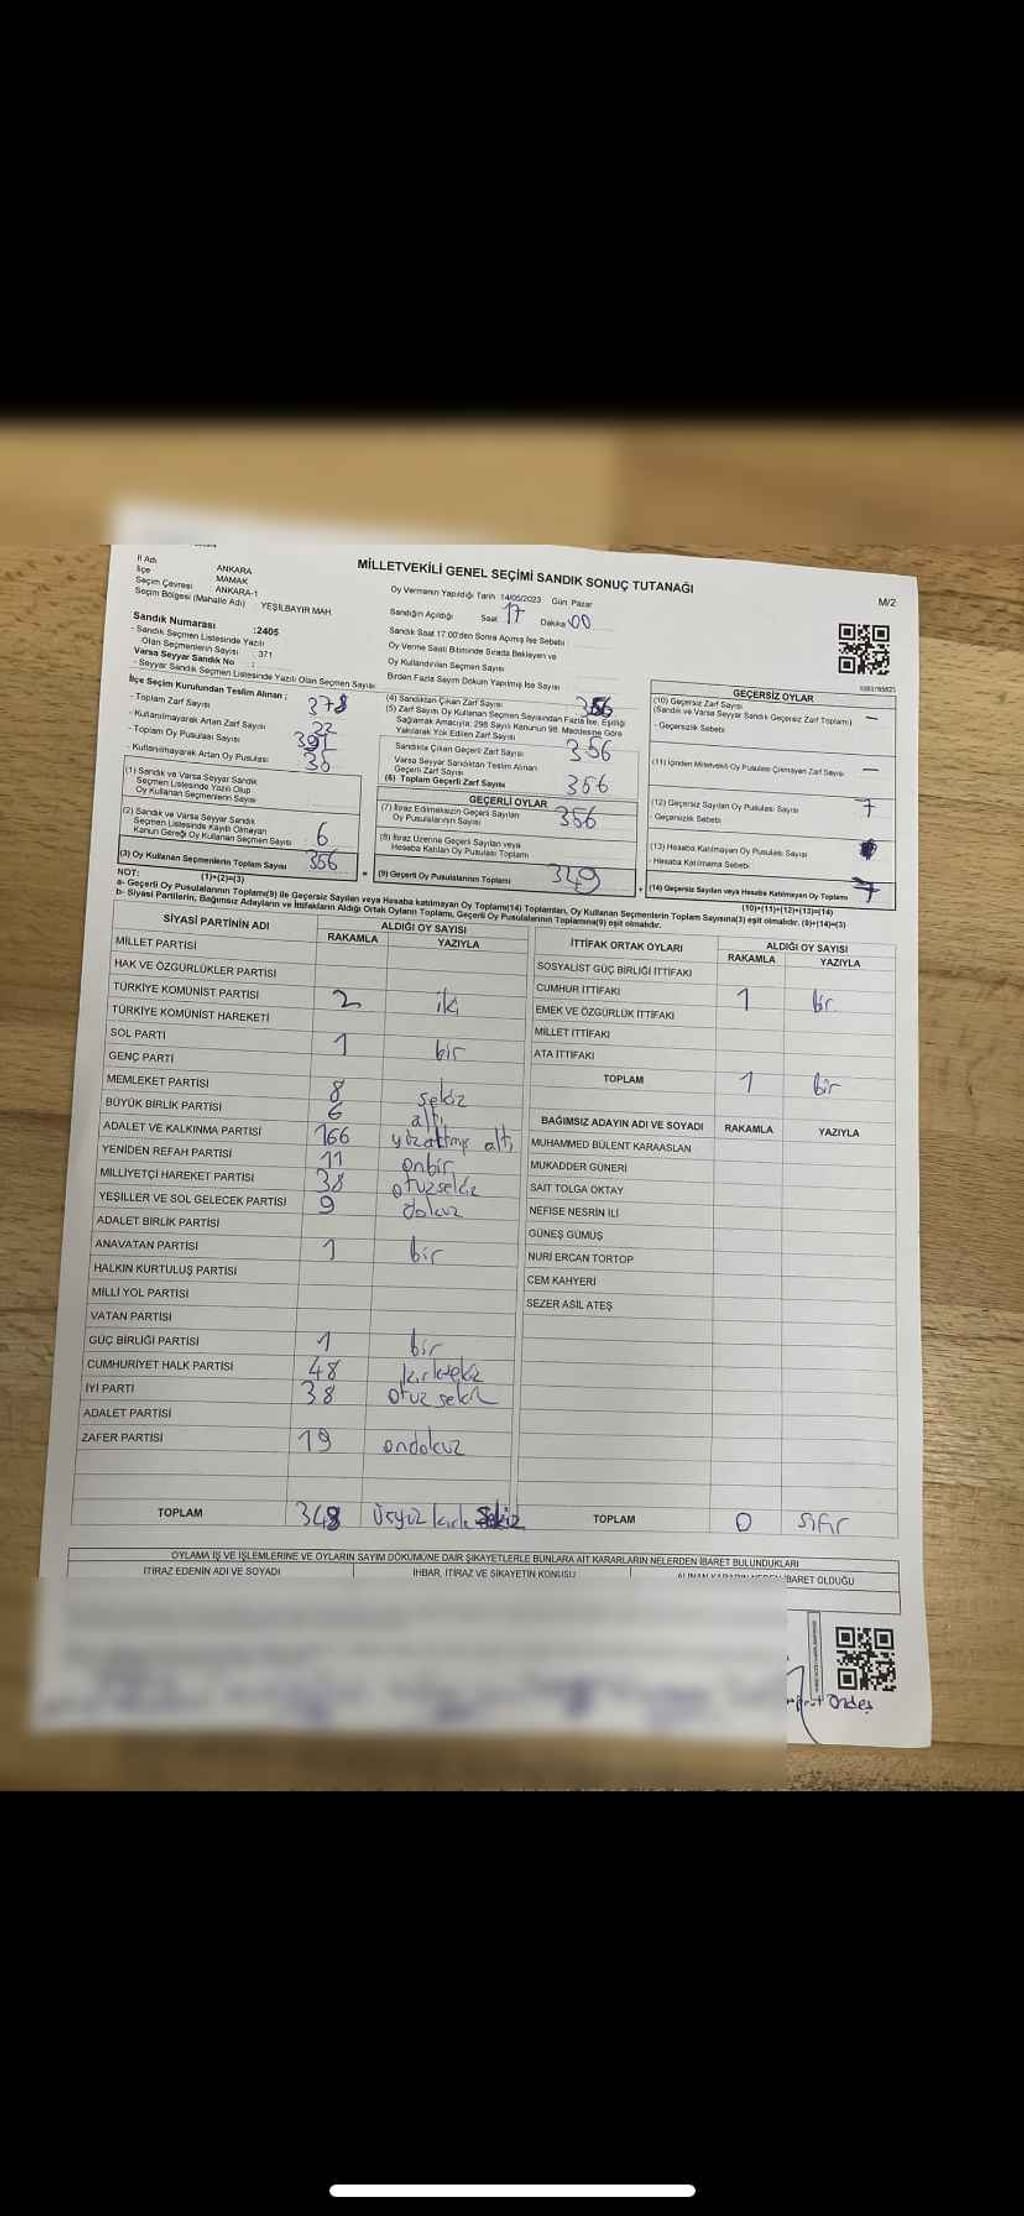 MİLLETVEKİLİ GENEL SEÇİMİ SANDIK SONUÇ TUTANAĞI
M/2
İl Adı ANKARA
İlçe MAMAK
Seçim Çevresi ANKARA-1
Seçim Bölgesi (Mahalle Adı) YEŞİLBAYIR MAH.
Sandık Numarası :2405
- Sandık Seçmen Listesinde Yazılı
Olan Seçmenlerin Sayısı : 371
Varsa Seyyar Sandık No :
- Seyyar Sandık Seçmen Listesinde Yazılı Olan Seçmen Sayısı
Oy Vermenin Yapıldığı Tarih 14/05/2023 Gün Pazar
Sandığın Açıldığı Saat 17 Dakika 00
Sandık Saat 17.00'den Sonra Açılmış İse Sebebi
Oy Verme Saati Bitiminde Sırada Bekleyen ve
Oy Kullandırılan Seçmen Sayısı
Birden Fazla Sayım Döküm Yapılmış İse Sayısı
İlçe Seçim Kurulundan Teslim Alınan :
- Toplam Zarf Sayısı 378
- Kullanılmayarak Artan Zarf Sayısı 22
- Toplam Oy Pusulası Sayısı 391
- Kullanılmayarak Artan Oy Pusulası 35
(1) Sandık ve Varsa Seyyar Sandık
Seçmen Listesinde Yazılı Olup
Oy Kullanan Seçmenlerin Sayısı
(2) Sandık ve Varsa Seyyar Sandık
Seçmen Listesinde Kayıtlı Olmayan
Kanun Gereği Oy Kullanan Seçmen Sayısı 6
(3) Oy Kullanan Seçmenlerin Toplam Sayısı 356
(1)+(2)=(3)
(4) Sandıktan Çıkan Zarf Sayısı 356
(5) Zarf Sayısı Oy Kullanan Seçmen Sayısından Fazla İse, Eşitliği
Sağlamak Amacıyla, 298 Sayılı Kanunun 98. Maddesine Göre
Yakılarak Yok Edilen Zarf Sayısı
Sandıkta Çıkan Geçerli Zarf Sayısı 356
Varsa Seyyar Sandıktan Teslim Alınan
Geçerli Zarf Sayısı
(6) Toplam Geçerli Zarf Sayısı 356
GEÇERLİ OYLAR
(7) İtiraz Edilmeksizin Geçerli Sayılan
Oy Pusulalarının Sayısı 356
(8) İtiraz Üzerine Geçerli Sayılan veya
Hesaba Katılan Oy Pusulası Toplamı
(9) Geçerli Oy Pusulalarının Toplamı 349
GEÇERSİZ OYLAR
(10) Geçersiz Zarf Sayısı
(Sandık ve Varsa Seyyar Sandık Geçersiz Zarf Toplamı) —
- Geçersizlik Sebebi
(11) İçinden Milletvekili Oy Pusulası Çıkmayan Zarf Sayısı —
(12) Geçersiz Sayılan Oy Pusulası Sayısı 7
Geçersizlik Sebebi
(13) Hesaba Katılmayan Oy Pusulası Sayısı
- Hesaba Katılmama Sebebi
(14) Geçersiz Sayılan veya Hesaba Katılmayan Oy Toplamı 7
(10)+(11)+(12)+(13)=(14)
NOT:
a- Geçerli Oy Pusulalarının Toplamı(9) ile Geçersiz Sayılan veya Hesaba katılmayan Oy Toplamı(14) Toplamları, Oy Kullanan Seçmenlerin Toplam Sayısına(3) eşit olmalıdır. (9)+(14)=(3)
b- Siyasi Partilerin, Bağımsız Adayların ve İttifakların Aldığı Ortak Oyların Toplamı, Geçerli Oy Pusulalarının Toplamına(9) eşit olmalıdır.
SİYASİ PARTİNİN ADI ALDIĞI OY SAYISI
RAKAMLA YAZIYLA
MİLLET PARTİSİ
HAK VE ÖZGÜRLÜKLER PARTİSİ
TÜRKİYE KOMÜNİST PARTİSİ 2 iki
TÜRKİYE KOMÜNİST HAREKETİ
SOL PARTİ 1 bir
GENÇ PARTİ
MEMLEKET PARTİSİ 8 sekiz
BÜYÜK BİRLİK PARTİSİ 6 altı
ADALET VE KALKINMA PARTİSİ 166 yüzatmış altı
YENİDEN REFAH PARTİSİ 11 onbir
MİLLİYETÇİ HAREKET PARTİSİ 38 otuzsekiz
YEŞİLLER VE SOL GELECEK PARTİSİ 9 dokuz
ADALET BİRLİK PARTİSİ
ANAVATAN PARTİSİ 1 bir
HALKIN KURTULUŞ PARTİSİ
MİLLİ YOL PARTİSİ
VATAN PARTİSİ
GÜÇ BİRLİĞİ PARTİSİ 1 bir
CUMHURİYET HALK PARTİSİ 48 kırksekiz
İYİ PARTİ 38 otuz sekiz
ADALET PARTİSİ
ZAFER PARTİSİ 19 ondokuz
TOPLAM 348 üçyüz kırk sekiz
İTTİFAK ORTAK OYLARI ALDIĞI OY SAYISI
RAKAMLA YAZIYLA
SOSYALİST GÜÇ BİRLİĞİ İTTİFAKI
CUMHUR İTTİFAKI 1 bir
EMEK VE ÖZGÜRLÜK İTTİFAKI
MİLLET İTTİFAKI
ATA İTTİFAKI
TOPLAM 1 bir
BAĞIMSIZ ADAYIN ADI VE SOYADI RAKAMLA YAZIYLA
MUHAMMED BÜLENT KARAASLAN
MUKADDER GÜNERİ
SAİT TOLGA OKTAY
NEFİSE NESRİN İLİ
GÜNEŞ GÜMÜŞ
NURİ ERCAN TORTOP
CEM KAHYERİ
SEZER ASİL ATEŞ
TOPLAM 0 sıfır
OYLAMA İŞ VE İŞLEMLERİNE VE OYLARIN SAYIM DÖKÜMÜNE DAİR ŞİKAYETLERLE BUNLARA AİT KARARLARIN NELERDEN İBARET BULUNDUKLARI
İTİRAZ EDENİN ADI VE SOYADI İHBAR, İTİRAZ VE ŞİKAYETİN KONUSU İBARET OLDUĞU